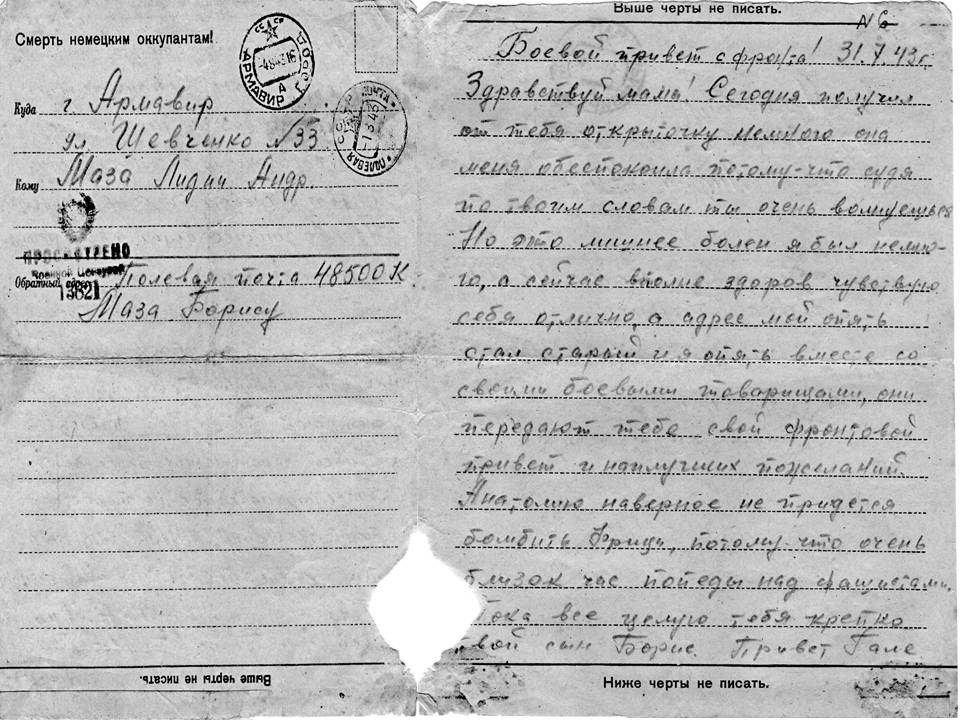 Смерть немецким оккупантам!
СССР
АРМАВИР
4 8 43 16
А
Куда г. Армавир
ул Шевченко №33
ПОЛЕВАЯ ПОЧТА
СССР
Кому Маза Лидии Андр.
ПРОСМОТРЕНО
Военной Цензурой
13821
Обратный адрес Полевая почта 48500К
Маза Борису
Выше черты не писать.
Выше черты не писать.
№6
Боевой привет с фронта! 31.7.43г.
Здравствуй мама! Сегодня получил
от тебя открыточку немного она
меня обеспокоила потому-что судя
по твоим словам ты очень волнуешься
Но это лишнее болен я был немно-
го, а сейчас вполне здоров чувствую
себя отлично, а адрес мой опять
стал старый и я опять вместе со
своими боевыми товарищами, они
передают тебе свой фронтовой
привет и наилучших пожеланий.
Анатолию наверное не придется
бомбить Фрицы, потому-что очень
близок час победы над фашистами.
Пока все целую тебя крепко
твой сын Борис. Привет Гале
Ниже черты не писать.